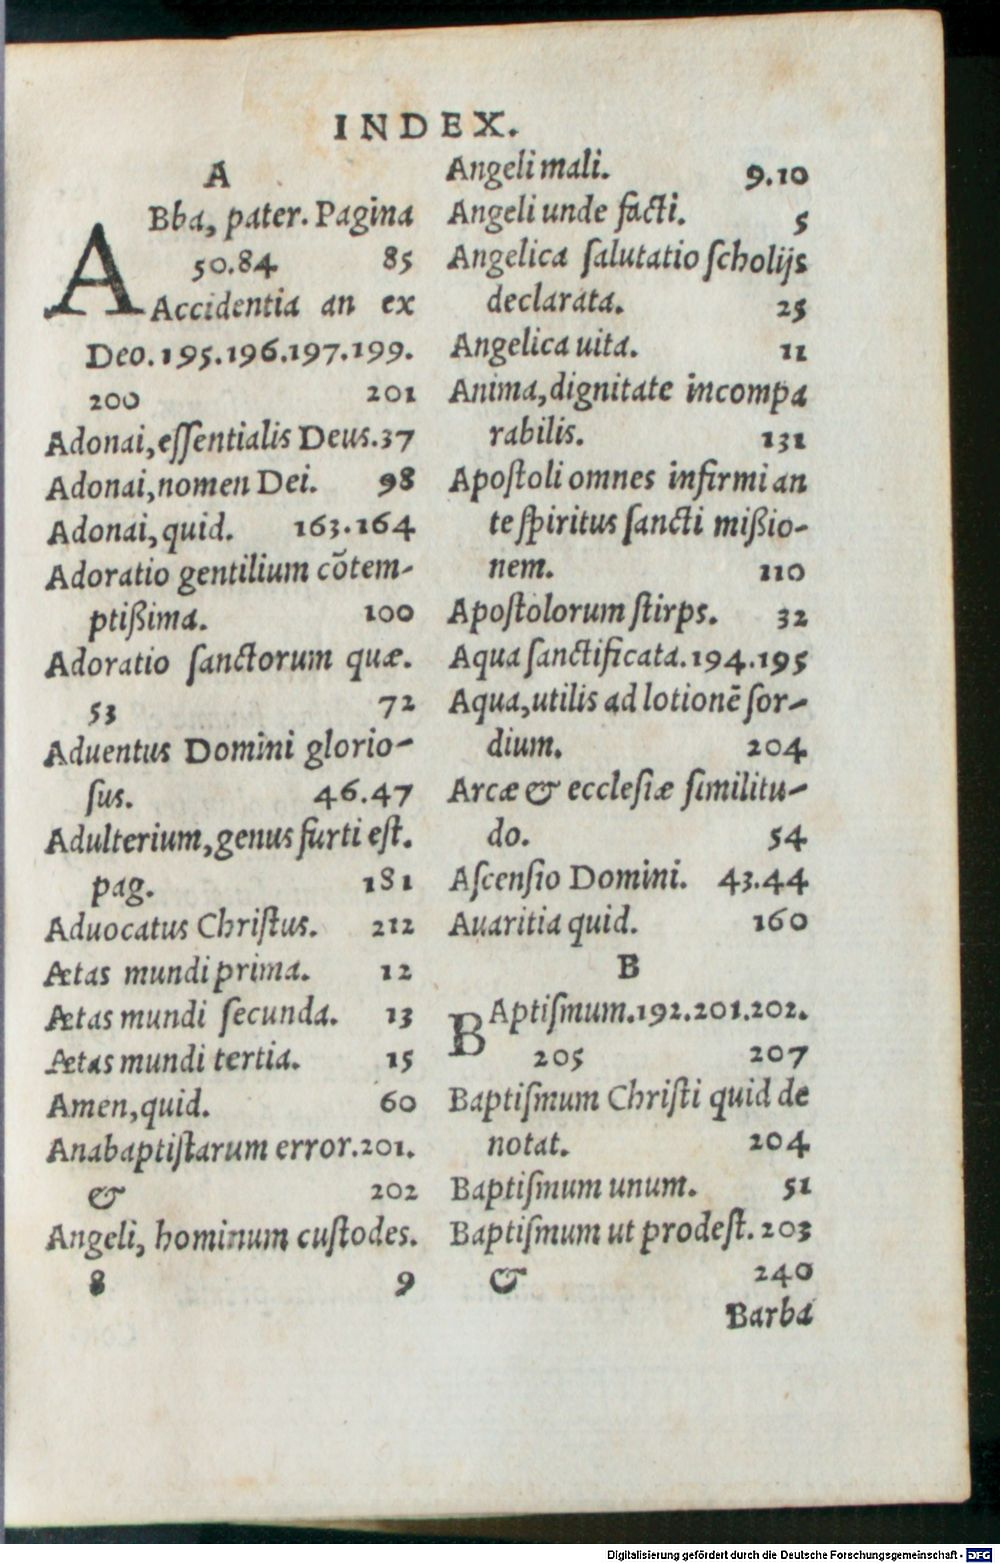 INDEX.
A
ABba, pater. Pagina
50.84 85
Accidentia an ex
Deo.195.196.197.199.
200 201
Adonai, eſſentialis Deus.37
Adonai, nomen Dei. 98
Adonai, quid. 163.164
Adoratio gentilium cõtem-
ptißima. 100
Adoratio ſanctorum quæ.
53 72
Aduentus Domini glorio-
ſus. 46.47
Adulterium, genus furti eſt.
pag. 181
Aduocatus Chriſtus. 212
Ætas mundi prima. 12
Ætas mundi ſecunda. 13
Ætas mundi tertia. 15
Amen, quid. 60
Anabaptiſtarum error.201.
& 202
Angeli, hominum cuſtodes.
8 9
Angeli mali. 9.10
Angeli unde facti. 5
Angelica ſalutatio ſcholijs
declarata. 25
Angelica uita. 11
Anima, dignitate incompa
rabilis. 131
Apoſtoli omnes infirmi an
te ſpiritus ſancti mißio-
nem. 110
Apoſtolorum ſtirps. 32
Aqua ſanctificata.194.195
Aqua, utilis ad lotionẽ ſor-
dium. 204
Arcæ & eccleſiæ ſimilitu-
do. 54
Aſcenſio Domini. 43.44
Auaritia quid. 160
B
BAptiſmum.192.201.202.
205 207
Baptiſmum Chriſti quid de
notat. 204
Baptiſmum unum. 51
Baptiſmum ut prodeſt. 203
& 240
Barba
Digitalisierung gefördert durch die Deutsche Forschungsgemeinschaft - DFG